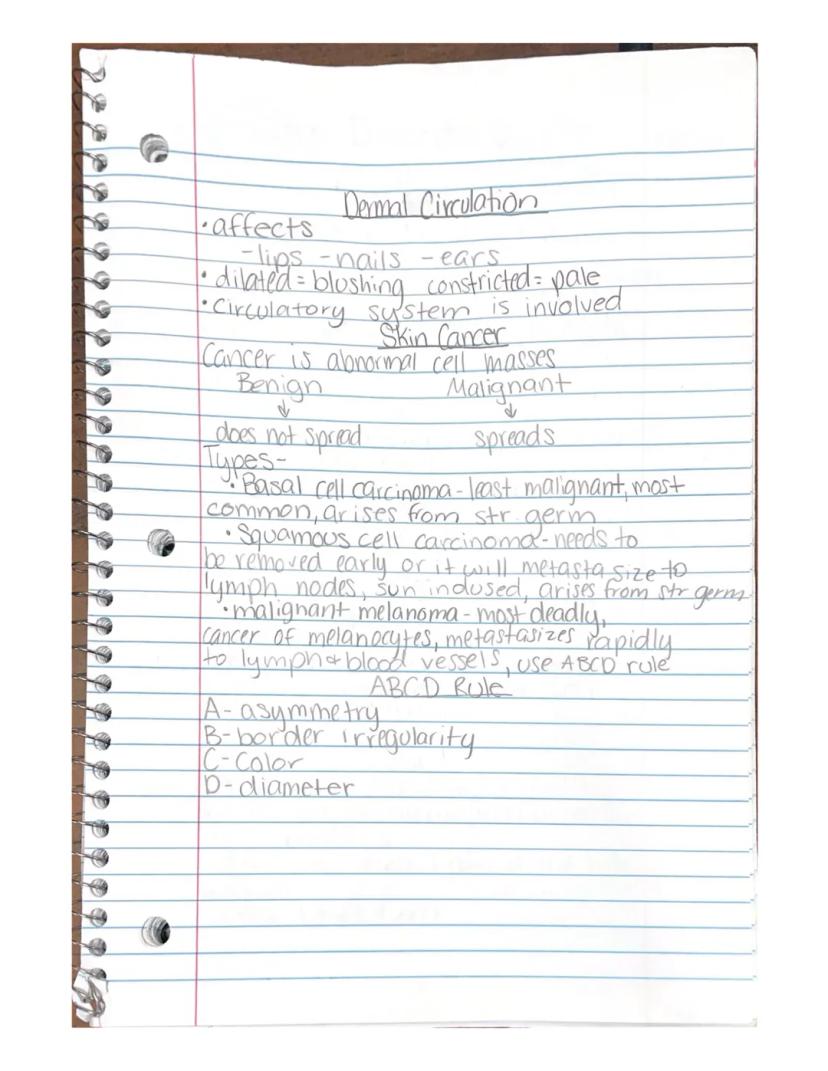 Dermal Circulation
• affects
- lips - nails - ears
• dilated = blushing constricted = pale
• Circulatory system is involved
Skin Cancer
Cancer is abnormal cell masses
Benign Malignant
↓ ↓
does not spread spreads
Types-
• Basal cell carcinoma - least malignant, most
common, arises from str. germ
• Squamous cell carcinoma - needs to
be removed early or it will metastasize to
lymph nodes, sun indused, arises from str germ
• malignant melanoma - most deadly,
cancer of melanocytes, metastasizes rapidly
to lymph & blood vessels, use ABCD rule
ABCD Rule
A - asymmetry
B - border irregularity
C - Color
D - diameter